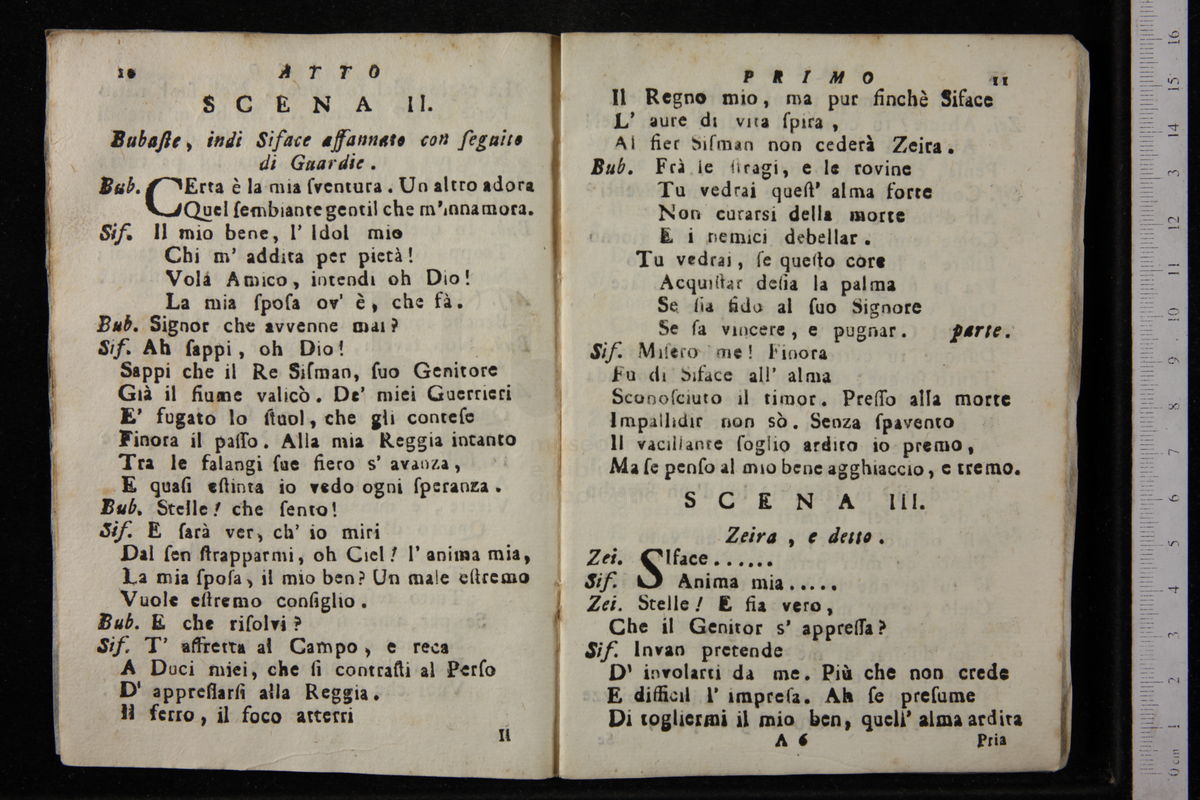 10 ATTO
SCENA II.
Bubaſte, indi Siface affannato con ſeguito
di Guardie.
Bub. CErta è la mia ſventura. Un altro adora
Quel ſembiante gentil che m'innamora.
Sif. Il mio bene, l' Idol mio
Chi m' addita per pietà!
Volà Amico, intendi oh Dio!
La mia ſpoſa ov' è, che fà.
Bub. Signor che avvenne mai?
Sif. Ah ſappi, oh Dio!
Sappi che il Re Siſman, ſuo Genitore
Già il fiume valicò. De' miei Guerrieri
E' fugato lo ſtuol, che gli conteſe
Finora il paſſo. Alla mia Reggia intanto
Tra le falangi ſue fiero s' avanza,
E quaſi eſtinta io vedo ogni ſperanza.
Bub. Stelle! che ſento!
Sif. E ſarà ver, ch' io miri
Dal ſen ſtrapparmi, oh Ciel! l' anima mia,
La mia ſpoſa, il mio ben? Un male eſtremo
Vuole eſtremo conſiglio.
Bub. E che riſolvi?
Sif. T' affretta al Campo, e reca
A Duci miei, che ſi contraſti al Perſo
D' appreſſarſi alla Reggia.
Il ferro, il foco atterri
Il
PRIMO 11
Il Regno mio, ma pur finchè Siface
L' aure di vita ſpira,
Al fier Siſman non cederà Zeira.
Bub. Frà le ſtragi, e le rovine
Tu vedrai queſt' alma forte
Non curarsi della morte
E i nemici debellar.
Tu vedrai, ſe queſto core
Acquiſtar deſia la palma
Se ſia fido al ſuo Signore
Se ſa vincere, e pugnar. parte.
Sif. Miſero me! Finora
Fu di Siface all' alma
Sconoſciuto il timor. Preſſo alla morte
Impallidir non sò. Senza ſpavento
Il vacillante ſoglio ardito io premo,
Ma ſe penſo al mio bene agghiaccio, e tremo.
SCENA III.
Zeira, e detto.
Zei. SIface......
Sif. Anima mia.....
Zei. Stelle! E fia vero,
Che il Genitor s' appreſſa?
Sif. Invan pretende
D' involarti da me. Più che non crede
E difficil l' impreſa. Ah ſe preſume
Di togliermi il mio ben, quell' alma ardita
A 6 Pria
0 cm 1 2 3 4 5 6 7 8 9 10 11 12 13 14 15 16